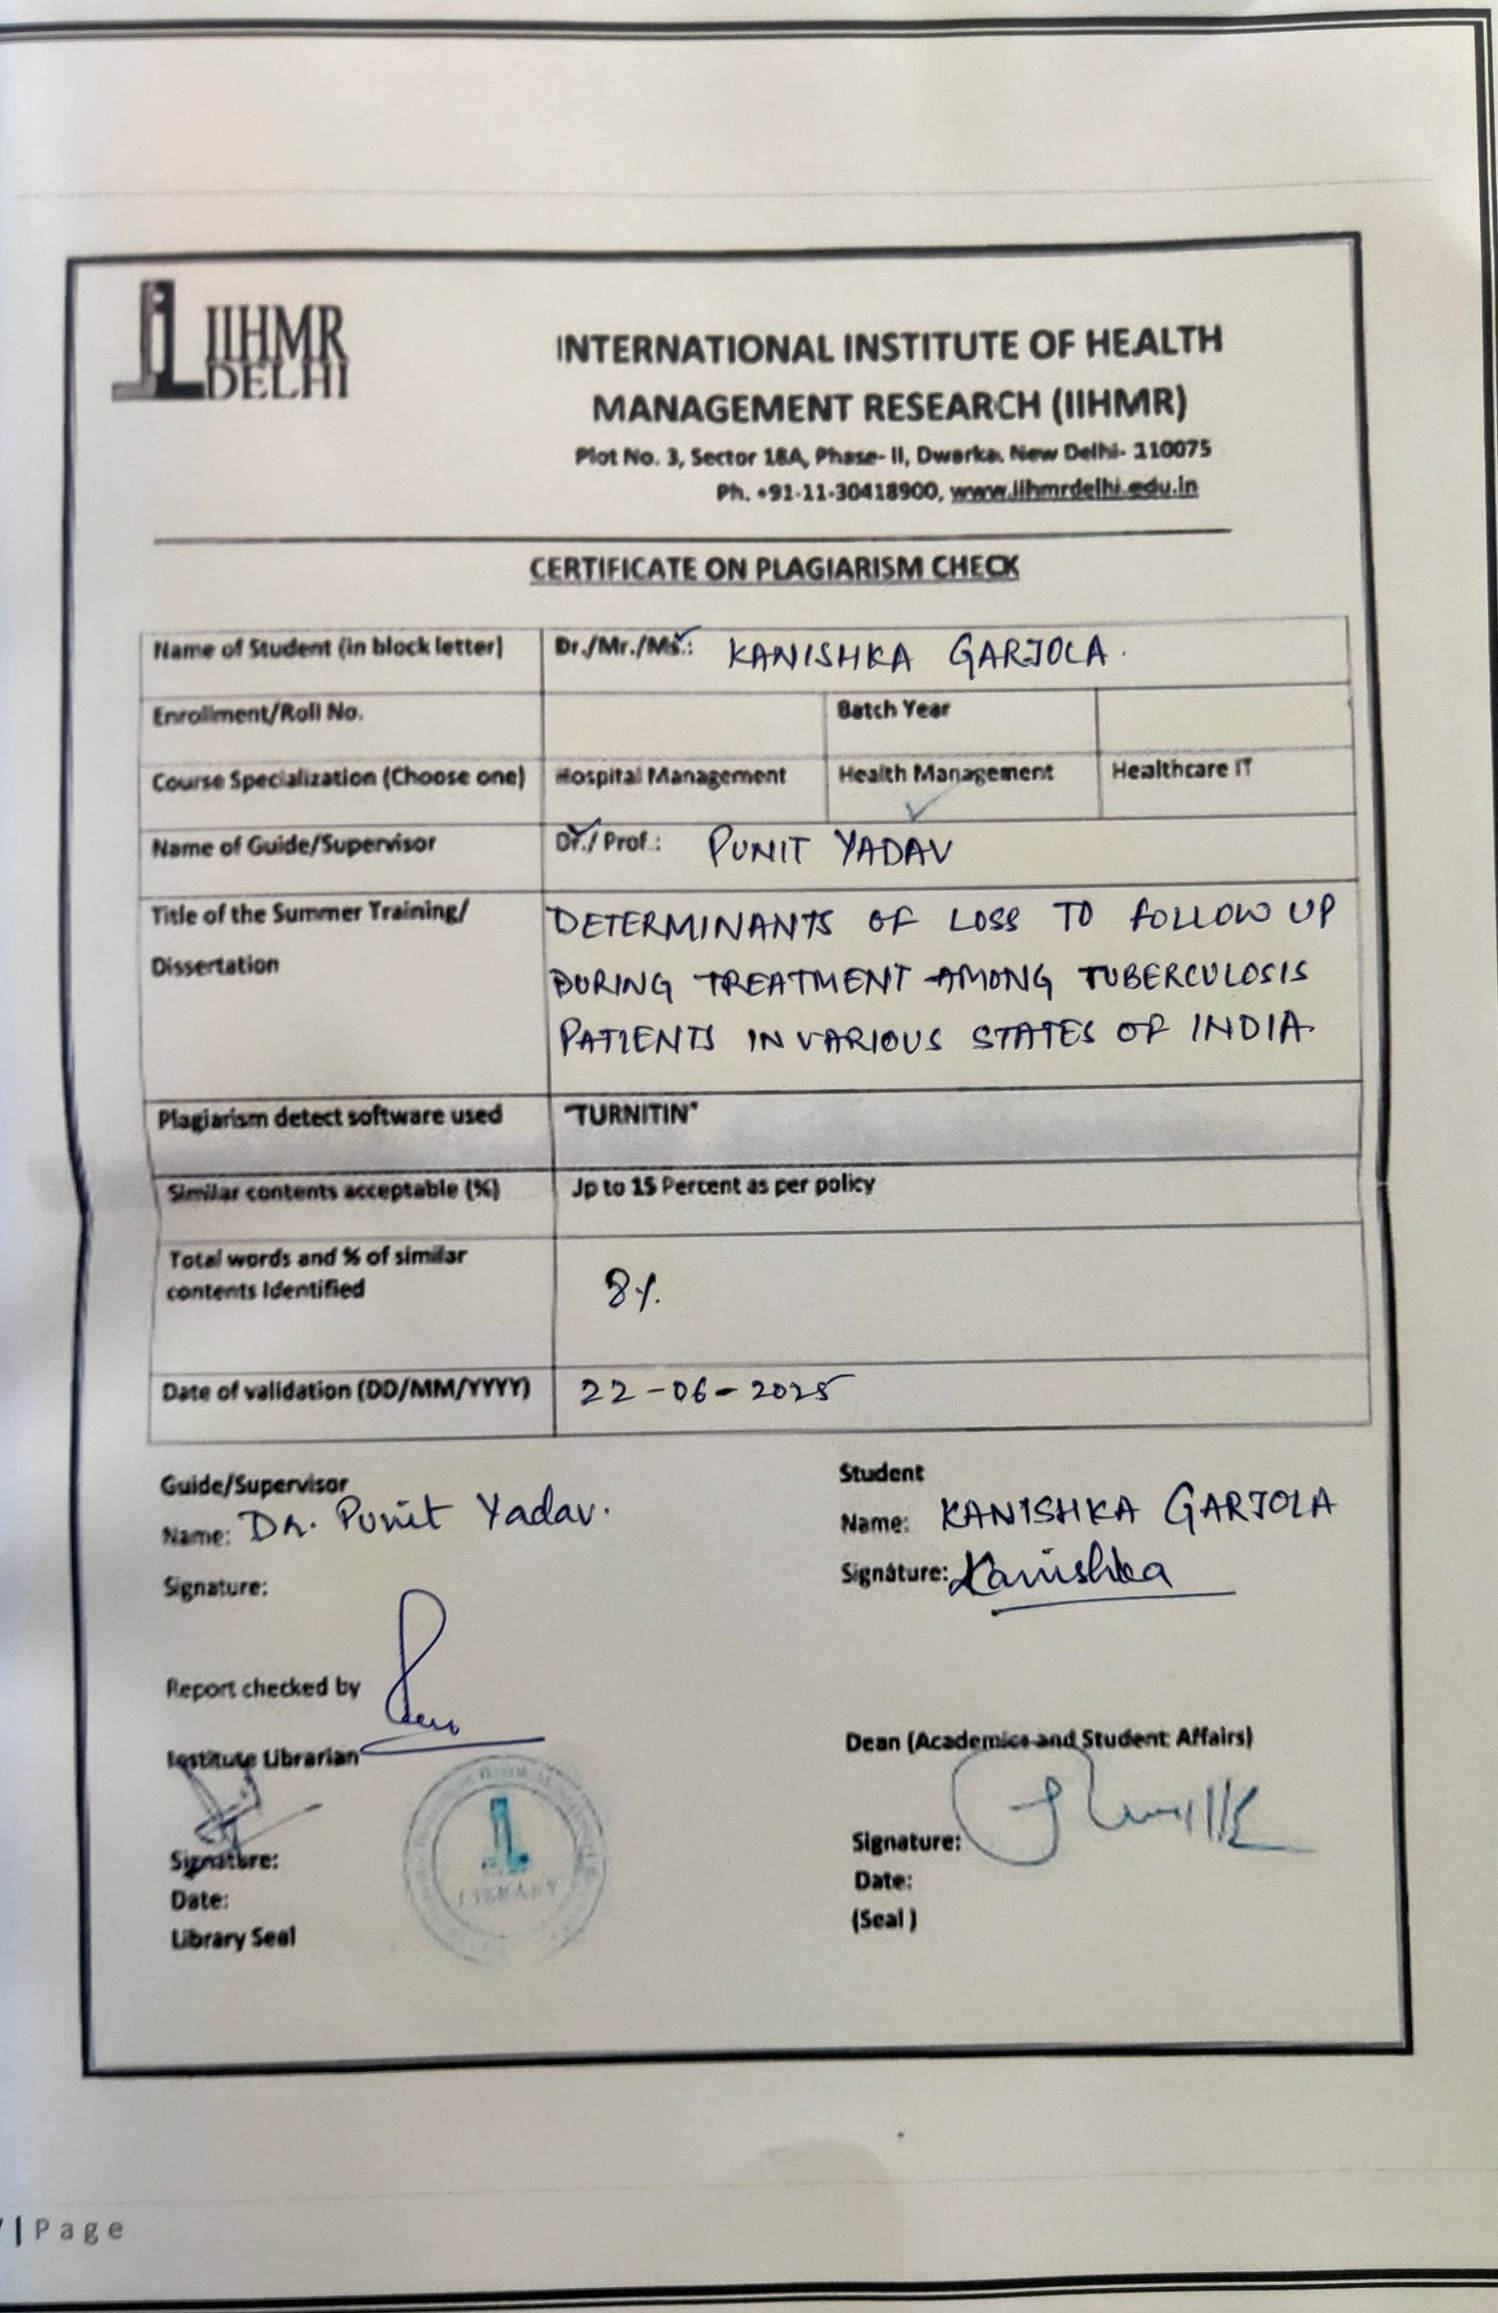 IIHMR
DELHI
INTERNATIONAL INSTITUTE OF HEALTH
MANAGEMENT RESEARCH (IIHMR)
Plot No. 3, Sector 18A, Phase- II, Dwarka, New Delhi- 110075
Ph. +91-11-30418900, www.iihmrdelhi.edu.in
CERTIFICATE ON PLAGIARISM CHECK
Name of Student (in block letter) Dr./Mr./Ms.: KANISHKA GARJOLA.
Enrollment/Roll No. Batch Year
Course Specialization (Choose one) Hospital Management Health Management Healthcare IT
Name of Guide/Supervisor Dr./ Prof.: PUNIT YADAV
Title of the Summer Training/ DETERMINANTS OF LOSS TO FOLLOW UP
Dissertation DURING TREATMENT AMONG TUBERCULOSIS
PATIENTS IN VARIOUS STATES OF INDIA.
Plagiarism detect software used "TURNITIN"
Similar contents acceptable (%) Up to 15 Percent as per policy
Total words and % of similar
contents Identified 8%
Date of validation (DD/MM/YYYY) 22-06-2025
Guide/Supervisor Student
Name: Dr. Punit Yadav. Name: KANISHKA GARJOLA
Signature: Signature: Kanishka
Report checked by
Institute Librarian Dean (Academics and Student Affairs)
LIBRARY
Signature: Signature:
Date: Date:
Library Seal (Seal )
| Page